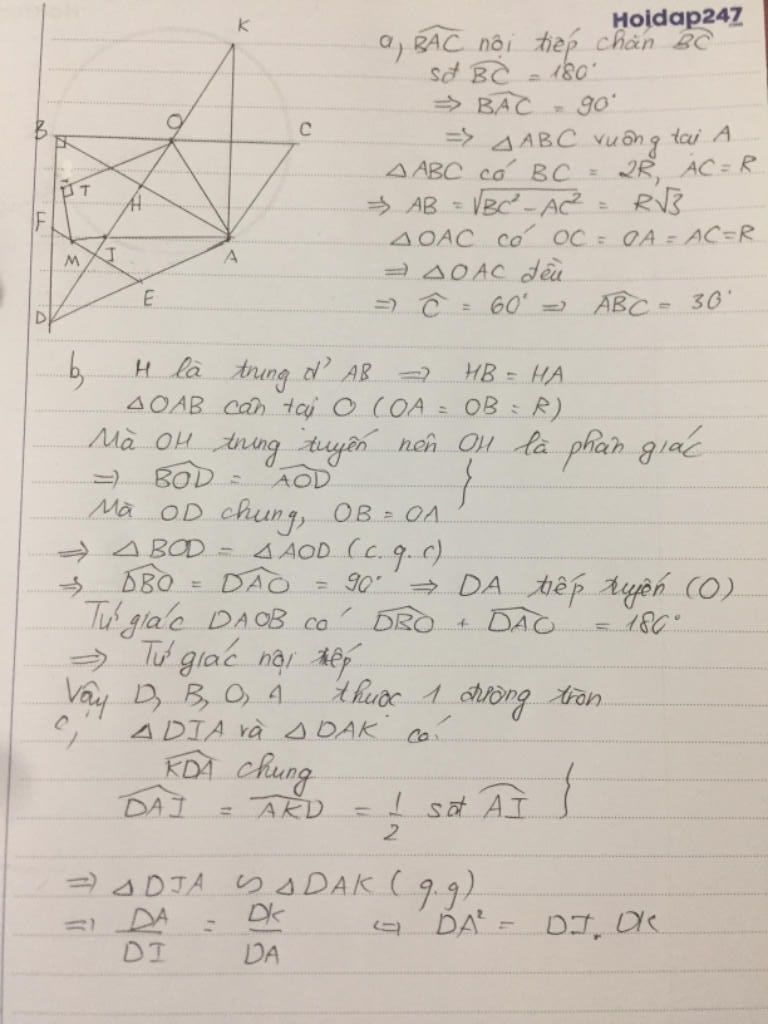 Hoidap247
K
O
B
C
T
H
F
M
I
A
E
D
a, BAC nội tiếp chắn BC
sđ BC = 180°
=> BAC = 90°
=> △ABC vuông tại A
△ABC có BC = 2R, AC = R
=> AB = √(BC² - AC²) = R√3
△OAC có OC = OA = AC = R
=> △OAC đều
=> C = 60° => ABC = 30°
b, H là trung đ' AB => HB = HA
△OAB cân tại O (OA = OB = R)
Mà OH trung tuyến nên OH là phân giác
=> BOD = AOD }
Mà OD chung, OB = OA
=> △BOD = △AOD (c.g.c)
=> DBO = DAO = 90° => DA tiếp tuyến (O)
Tứ giác DAOB có DBO + DAO = 180°
=> Tứ giác nội tiếp
Vậy D, B, O, A thuộc 1 đường tròn
c, △DIA và △DAK có
KDA chung
DAI = AKD = 1/2 sđ AI }
=> △DIA ∽ △DAK (g.g)
=> DA/DI = DK/DA <=> DA² = DI. DK